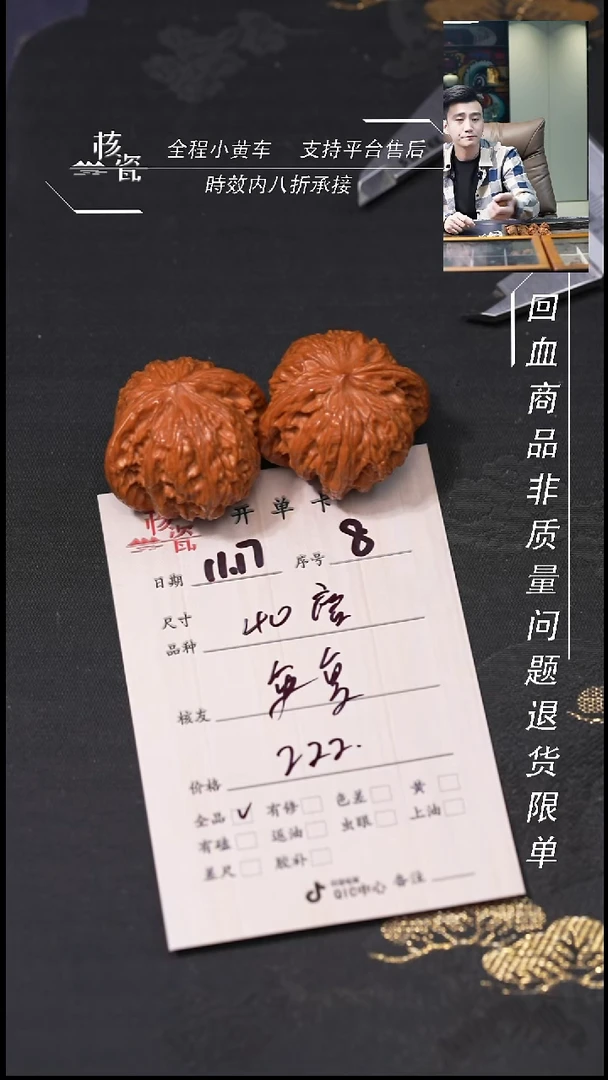 核瓷
全程小黄车 支持平台售后
時效内八折承接
回血商品非质量问题退货限单
核瓷
开单卡
日期 11.17 序号 8
尺寸
品种 40
核友
价格 222.
全品 ✓ 有修 色差 黄
有磕 返油 虫眼 上油
差尺 胶补
QIC中心 备注